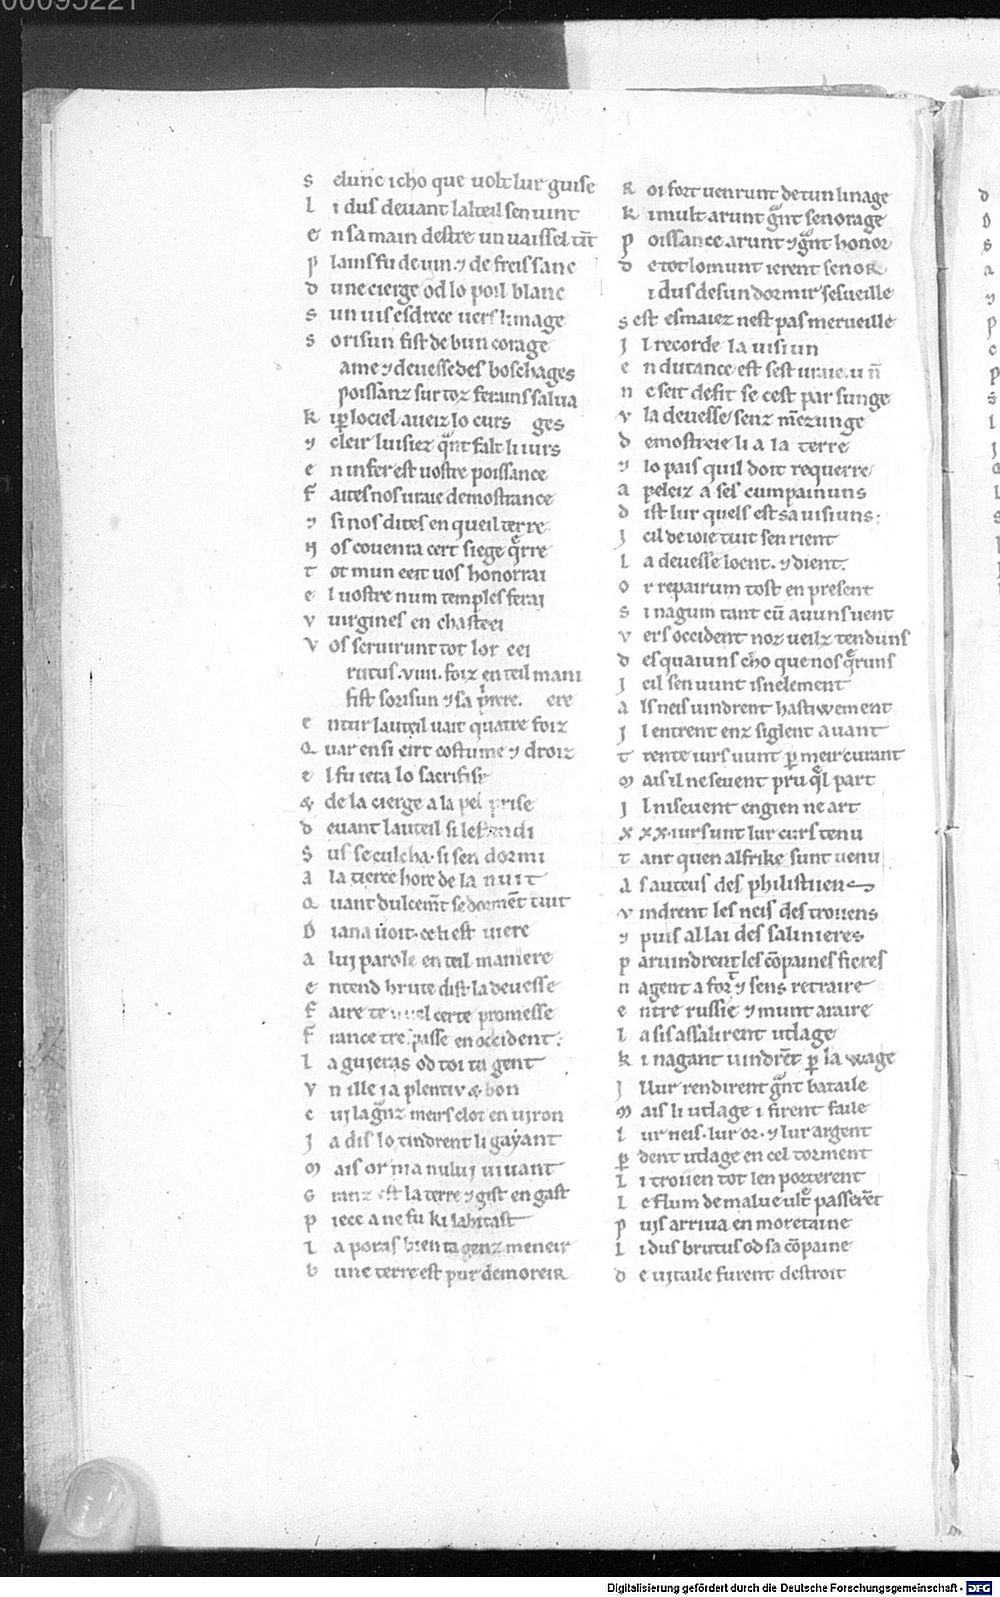 00095221
s elunc icho que uolt lur guise
l i dus deuant lalteil sen uint
e n sa main destre un uaissel tīt
p lains fu de uin ⁊ de freis sanc
d une cierge od lo poil blanc
s un uis esdrece uers limage
s orisun fist de bun corage
ame ⁊ deuesse des boschages
poissanz sur toz ferains salua
k ip lo ciel aueiz lo curs ges
⁊ cleir luisiez qᵃnt falt li iurs
e n infer est uostre poissance
f aites nos uraie demostrance
⁊ si nos dites en queil terre
N os couenra cert siege qᵉrre
t ot mun eeit uos honorrai
e l uostre num temples ferai
v uirgines en chasteei
V os seruirunt tot lor eei
rutus .viiii. foiz en teil mani
fist sorisun ⁊ sa pⁱrere. ere
e ntur lauteil uait quatre foiz
Q uar ensi eirt costume ⁊ droiz
e l fu ieta lo sacrifise
& de la cierge a la pel prise
d euant lauteil si lestendi
S us se culcha. si sen dormi
a la tierce hore de la nuit
Q uant dulcemt se dormēt tuit
D iana uoit. ce li est uiere
a lui parole en teil maniere
e ntend brute dist la deuesse
f aire te uuel certe promesse
f rance trespasse en occident.
l a guieras od toi ta gent
v n ille ia plentiv & bon
c ui la gᵃnz meirs clot en uiron
J a dis lo tindrent li gayant
m ais or ni a nului uiuant
G ranz est la terre ⁊ gist en gast
p iece a ne fu ki labitast
l a poras bien ta genz meneir
b une terre est pur demoreir
R oi fort uenrunt de tun linage
k i mult arunt gᵃnt senorage
p oissance arunt ⁊ gᵃnt honor
d e tot lo munt ierent senor
i dus de sun dormir sesueille
s est esmaiez nest pas merueille
J l recorde la uisiun
e n dutance est sest uraie. u n̄
n e seit desit se cest par sunge
v la deuesse senz mēzunge
d emostreie li a la terre
⁊ lo pais quil doit requerre
a peleiz a ses cumpainuns
d ist lur quels est sa uisiuns.
J cil de ioie tuit sen rient
l a deuesse loent. ⁊ dient.
o r repairum tost en present
s i nagum tant cū auuns uent
v ers occident noz ueilz tenduns
d esquaiuns cho que nos qᵉruns
J cil sen uunt isnelement
a ls neis uindrent hastiwement
J l entrent enz siglent auant
t rente iurs uunt ꝑ meir curant
m ais il ne seuent pru qᵉl part
J l ni seuent engien ne art
x xx. iurs unt lur curs tenu
t ant quen alfrike sunt uenu
A s auteus des philistiien
v indrent les neis des troiiens
⁊ puis al lai des salinieres
p aruindrent les cōpaines fieres
n agent a forᵗ ⁊ sens retraire
e ntre russie ⁊ munt araire
l a sis assalirent utlage
k i nagant uindrēt ꝑ la wage
J lur rendirent gᵃnt bataile
m ais li utlage i firent faile
l ur neis. lur or. ⁊ lur argent
ꝑ dent utlage en cel torment
L i troiien tot len porterent
L e flum de malue ultᵉ passerēt
p uis arriua en moretaine
l idus brutus od sa cōpaine
d e uitaile furent destroit
Digitalisierung gefördert durch die Deutsche Forschungsgemeinschaft - DFG